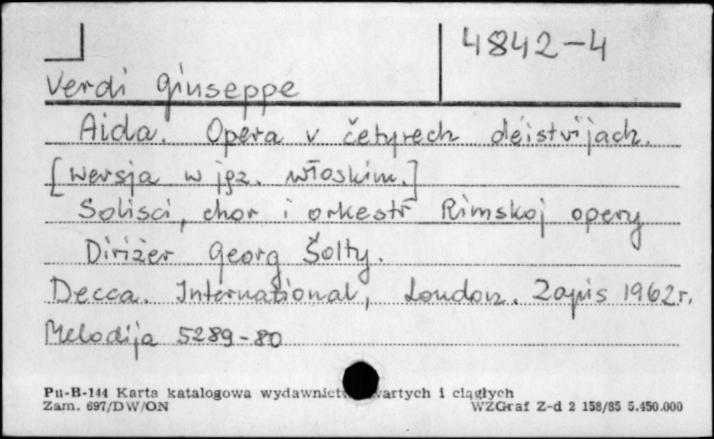 4842-4
Verdi Giuseppe
Aida. Opera v četyrech dejstvijach.
[Wersja w jęz. włoskim.]
Solisci, chor i orkestr Rimskoj opery
Dirižer Georg Šolty.
Decca. International, London. Zapis 1962 r.
Melodija 5289-80
Pu-B-144 Karta katalogowa wydawnictw zwartych i ciągłych
Zam. 697/DW/ON WZGraf Z-d 2 158/85 5.450.000